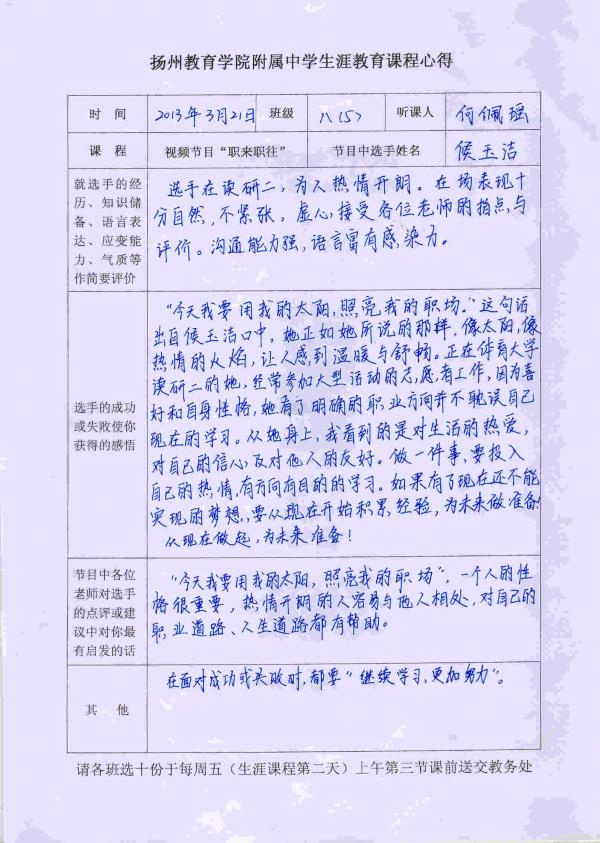 扬州教育学院附属中学生涯教育课程心得
时 间 2013年3月21日 班级 八(5) 听课人 何佩瑶
课 程 视频节目“职来职往” 节目中选手姓名 侯玉洁
就选手的经
历、知识储
备、语言表
达、应变能
力、气质等
作简要评价
选手在读研二，为人热情开朗。在场表现十
分自然，不紧张，虚心接受各位老师的指点与
评价。沟通能力强，语言富有感染力。
选手的成功
或失败使你
获得的感悟
“今天我要用我的太阳，照亮我的职场。”这句话
出自侯玉洁口中。她正如她所说的那样，像太阳，像
热情的火焰，让人感到温暖与舒畅。正在体育大学
读研二的她，经常参加大型活动的志愿者工作，因为喜
好和自身性格，她有了明确的职业方向并不耽误自己
现在的学习。从她身上，我看到的是对生活的热爱，
对自己的信心及对他人的友好。做一件事，要投入
自己的热情，有方向有目的的学习。如果有了现在还不能
实现的梦想，要从现在开始积累经验，为未来做准备！
从现在做起，为未来准备！
节目中各位
老师对选手
的点评或建
议中对你最
有启发的话
“今天我要用我的太阳，照亮我的职场”，一个人的性
格很重要，热情开朗的人容易与他人相处，对自己的
职业道路、人生道路都有帮助。
其 他
在面对成功或失败时，都要“继续学习，更加努力”。
请各班选十份于每周五（生涯课程第二天）上午第三节课前送交教务处